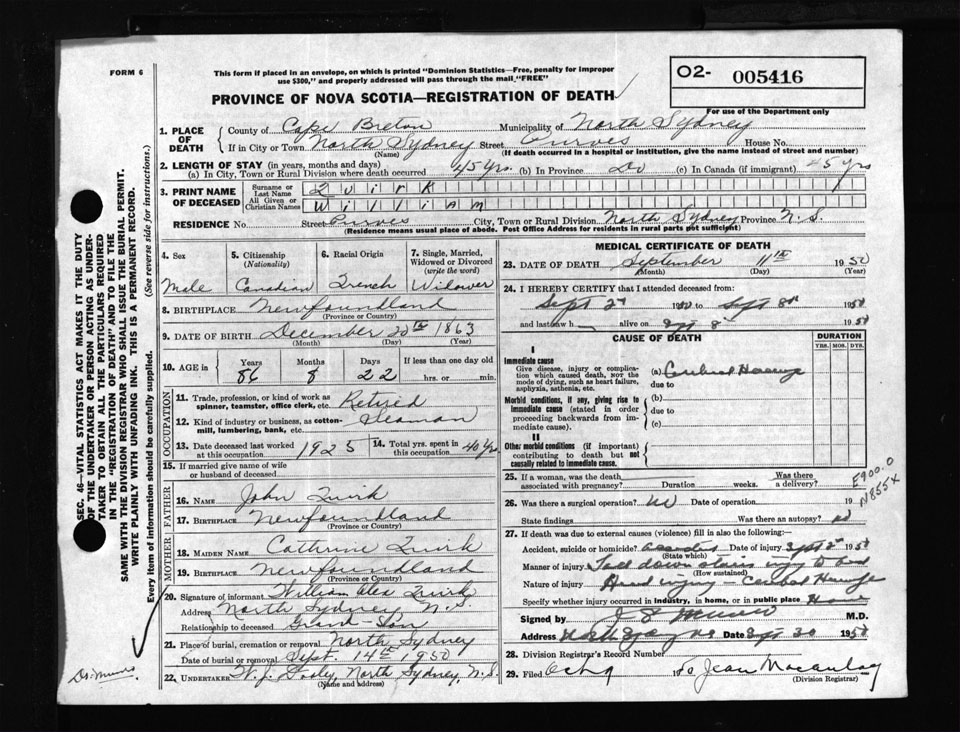 FORM 6
This form if placed in an envelope, on which is printed "Dominion Statistics—Free, penalty for improper
use $300," and properly addressed will pass through the mail "FREE"
PROVINCE OF NOVA SCOTIA—REGISTRATION OF DEATH
O2- 005416
For use of the Department only
1. PLACE OF DEATH
County of Cape Breton Municipality of North Sydney
If in City or Town North Sydney Street Purves House No.
(Name) (If death occurred in a hospital or institution, give the name instead of street and number)
2. LENGTH OF STAY (in years, months and days)
(a) In City, Town or Rural Division where death occurred 45 yrs. (b) In Province Do (c) In Canada (if immigrant) 45 yrs
3. PRINT NAME OF DECEASED
Surname or Last Name Quirk
All Given or Christian Names William
RESIDENCE No. Street Purves City, Town or Rural Division North Sydney Province N.S.
(Residence means usual place of abode. Post Office Address for residents in rural parts not sufficient)
4. Sex
Male
5. Citizenship (Nationality)
Canadian
6. Racial Origin
French
7. Single, Married, Widowed or Divorced (write the word)
Widower
8. BIRTHPLACE Newfoundland
(Province or Country)
9. DATE OF BIRTH December 20th 1863
(Month) (Day) (Year)
10. AGE in Years Months Days If less than one day old
86 8 22 hrs. or min.
OCCUPATION
11. Trade, profession, or kind of work as spinner, teamster, office clerk, etc. Retired
12. Kind of industry or business, as cotton-mill, lumbering, bank, etc. Seaman
13. Date deceased last worked at this occupation 1925 14. Total yrs. spent in this occupation 40 yrs
15. If married give name of wife or husband of deceased
FATHER
16. NAME John Quirk
17. BIRTHPLACE Newfoundland
(Province or Country)
MOTHER
18. MAIDEN NAME Cathrine Quirk
19. BIRTHPLACE Newfoundland
(Province or Country)
20. Signature of informant William Alex Quirk
Address North Sydney N.S.
Relationship to deceased Grand-Son
21. Place of burial, cremation or removal North Sydney
Date of burial or removal Sept. 14th 1950
22. UNDERTAKER W. J. Dooly, North Sydney, N.S.
(Name and address)
MEDICAL CERTIFICATE OF DEATH
23. DATE OF DEATH September 11th 1950
(Month) (Day) (Year)
24. I HEREBY CERTIFY that I attended deceased from:
Sept 2nd 1950 to Sept 8th 1950
and last saw h alive on Sept 8 1950
CAUSE OF DEATH
DURATION
YRS. MOS. DYS.
I
Immediate cause
Give disease, injury or complication which caused death, NOT the mode of dying, such as heart failure, asphyxia, asthenia, etc.
(a) Cerebral
due to
Morbid conditions, if any, giving rise to immediate cause (stated in order proceeding backwards from immediate cause).
(b)
due to
(c)
II
Other morbid conditions (if important) contributing to death but not causally related to immediate cause.
25. If a woman, was the death associated with pregnancy? Duration weeks. Was there a delivery?
26. Was there a surgical operation? no Date of operation 19
State findings Was there an autopsy? no
E900.0
N855X
27. If death was due to external causes (violence) fill in also the following:—
Accident, suicide or homicide? Date of injury Sept 2nd 1950
(State which)
Manner of injury Fall down stairs injy to head
(How sustained)
Nature of injury Head injury —
Specify whether injury occurred in industry, in home, or in public place Home
Signed by Munro M.D.
Address Date Sept 30 1950
28. Division Registrar's Record Number
29. Filed Oct 9 1950 Jean Macaulay
(Division Registrar)
SEC. 46—VITAL STATISTICS ACT MAKES IT THE DUTY
OF THE UNDERTAKER OR PERSON ACTING AS UNDER-
TAKER TO OBTAIN ALL THE PARTICULARS REQUIRED
IN THE "REGISTRATION OF DEATH" AND TO FILE THE
SAME WITH THE DIVISION REGISTRAR WHO SHALL ISSUE THE BURIAL PERMIT.
WRITE PLAINLY WITH UNFADING INK. THIS IS A PERMANENT RECORD.
Every item of information should be carefully supplied. (See reverse side for instructions.)
Dr. Munro